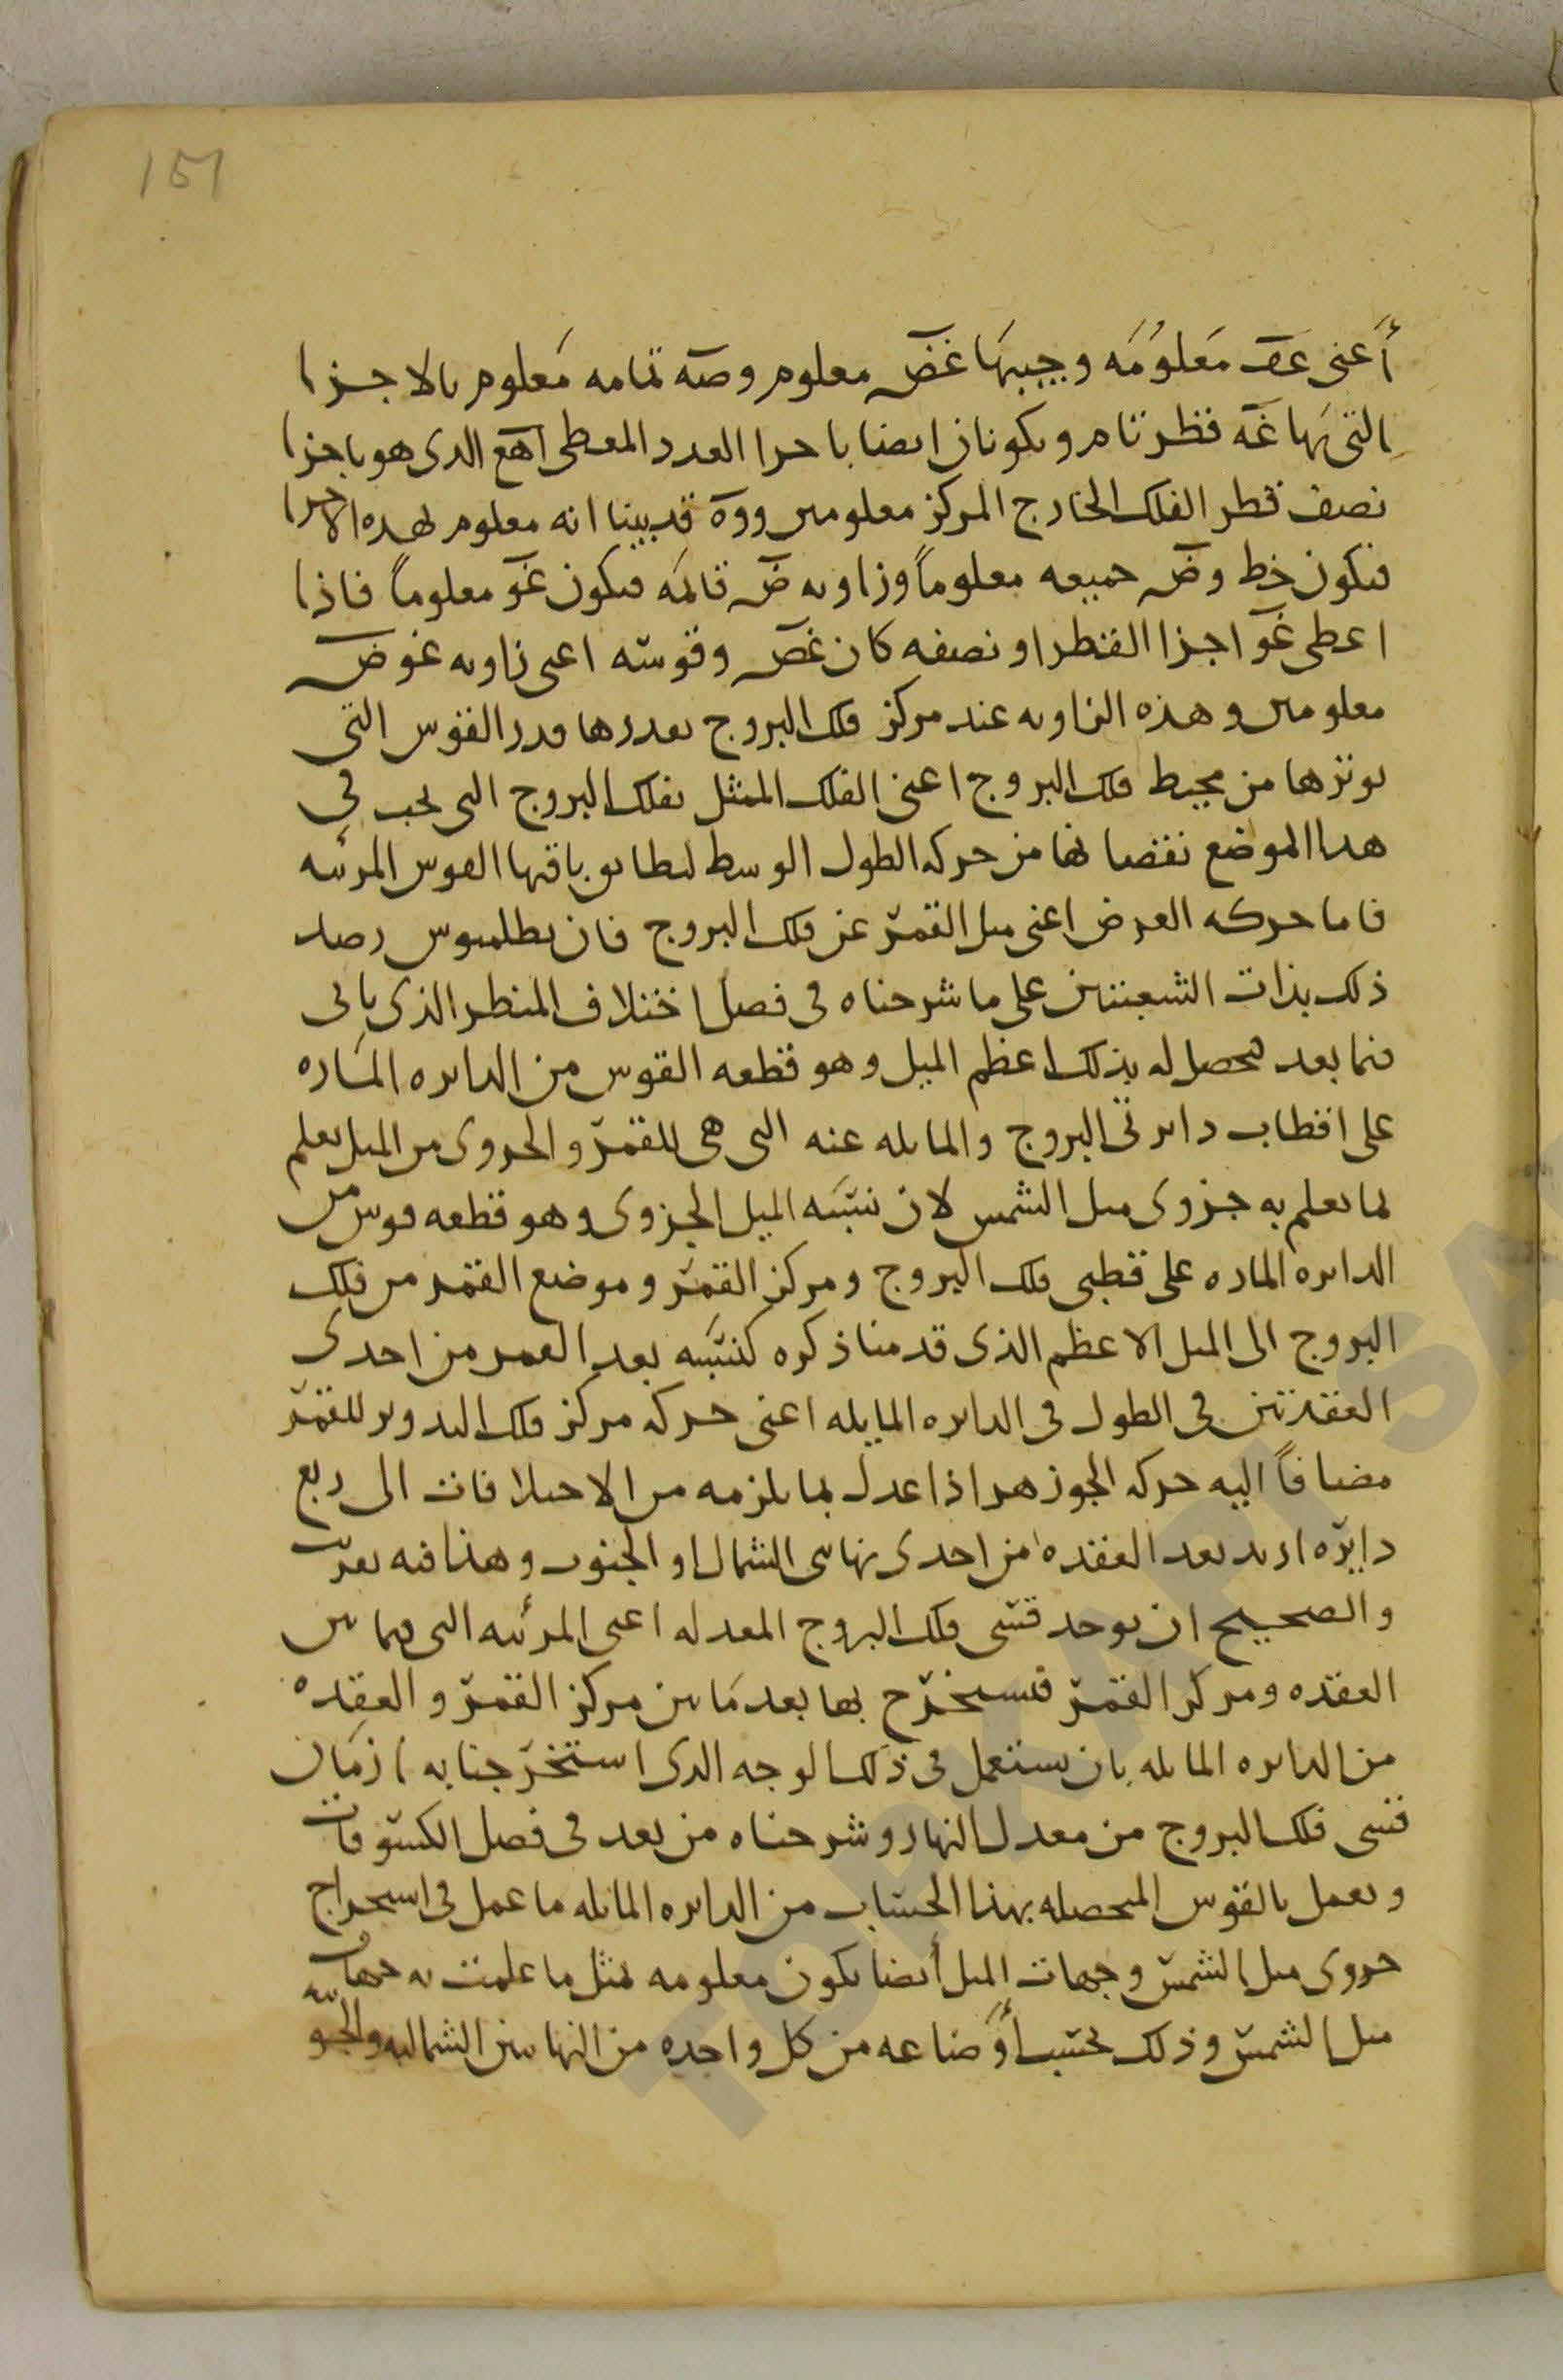 151
أعنى عق معلومه وجيبها غض معلوم وضه تمامه معلوم بالاجزا
التى بها غه قطر تام ويكونان ايضا باجزا العدد المعطى اهع الذى هو باجزا
نصف قطر الفلك الخارج المركز معلومين ووه قد بينا انه معلوم بهذه الاجزا
فيكون خط وض جميعه معلوماً وزاويه ض قائمه فيكون غو معلوماً فاذا
اعطى غو اجزا القطر او نصفه كان غض وقوسه اعنى زاويه غوض
معلومين وهذه الزاويه عند مركز فلك البروج بقدرها قدر القوس التى
يوترها من محيط فلك البروج اعنى الفلك الممثل بفلك البروج التى يجب فى
هذا الموضع نقصانها من حركه الطول الوسط ليطابق باقيها القوس المرئيه
فاما حركه العرض اعنى ميل القمر عن فلك البروج فان بطلميوس رصد
ذلك بذات الشعبتين على ما شرحناه فى فصل اختلاف المنظر الذى ياتى
فيما بعد فحصل له بذلك اعظم الميل وهو قطعه القوس من الدايره الماره
على اقطاب دايرتى البروج والمايله عنه التى هى للقمر والجزوى من الميل يعلم
لما يعلم به جزوى ميل الشمس لان نسبه الميل الجزوى وهو قطعه قوس من
الدايره الماره على قطبى فلك البروج ومركز القمر وموضع القمر من فلك
البروج الى الميل الاعظم الذى قدمنا ذكره كنسبه بعد القمر من احدى
العقدتين فى الطول فى الدايره المايله اعنى حركه مركز فلك التدوير للقمر
مضافاً اليه حركه الجوزهر اذا عدل بما يلزمه من الاختلافات الى ربع
دايره اريد بعد العقده من احدى نهايتى الشمال او الجنوب وهذا فيه تقريب
والصحيح ان يوخذ قسى فلك البروج المعدله اعنى المرئيه التى فيما بين
العقده ومركز القمر فيستخرج بها بعد ما بين مركز القمر والعقده
من الدايره المايله بان يستعمل فى ذلك الوجه الذى استخرجنا به ازمان
قسى فلك البروج من معدل النهار وشرحناه من بعد فى فصل الكسوفات
ويعمل بالقوس المحصله بهذا الحساب من الدايره المايله ما عمل فى استخراج
جزوى ميل الشمس وجهات الميل أيضا يكون معلومه بمثل ما علمت به جهات
ميل الشمس وذلك بحسب أوضاعه من كل واحده من النهايتين الشماليه والجنوبيه